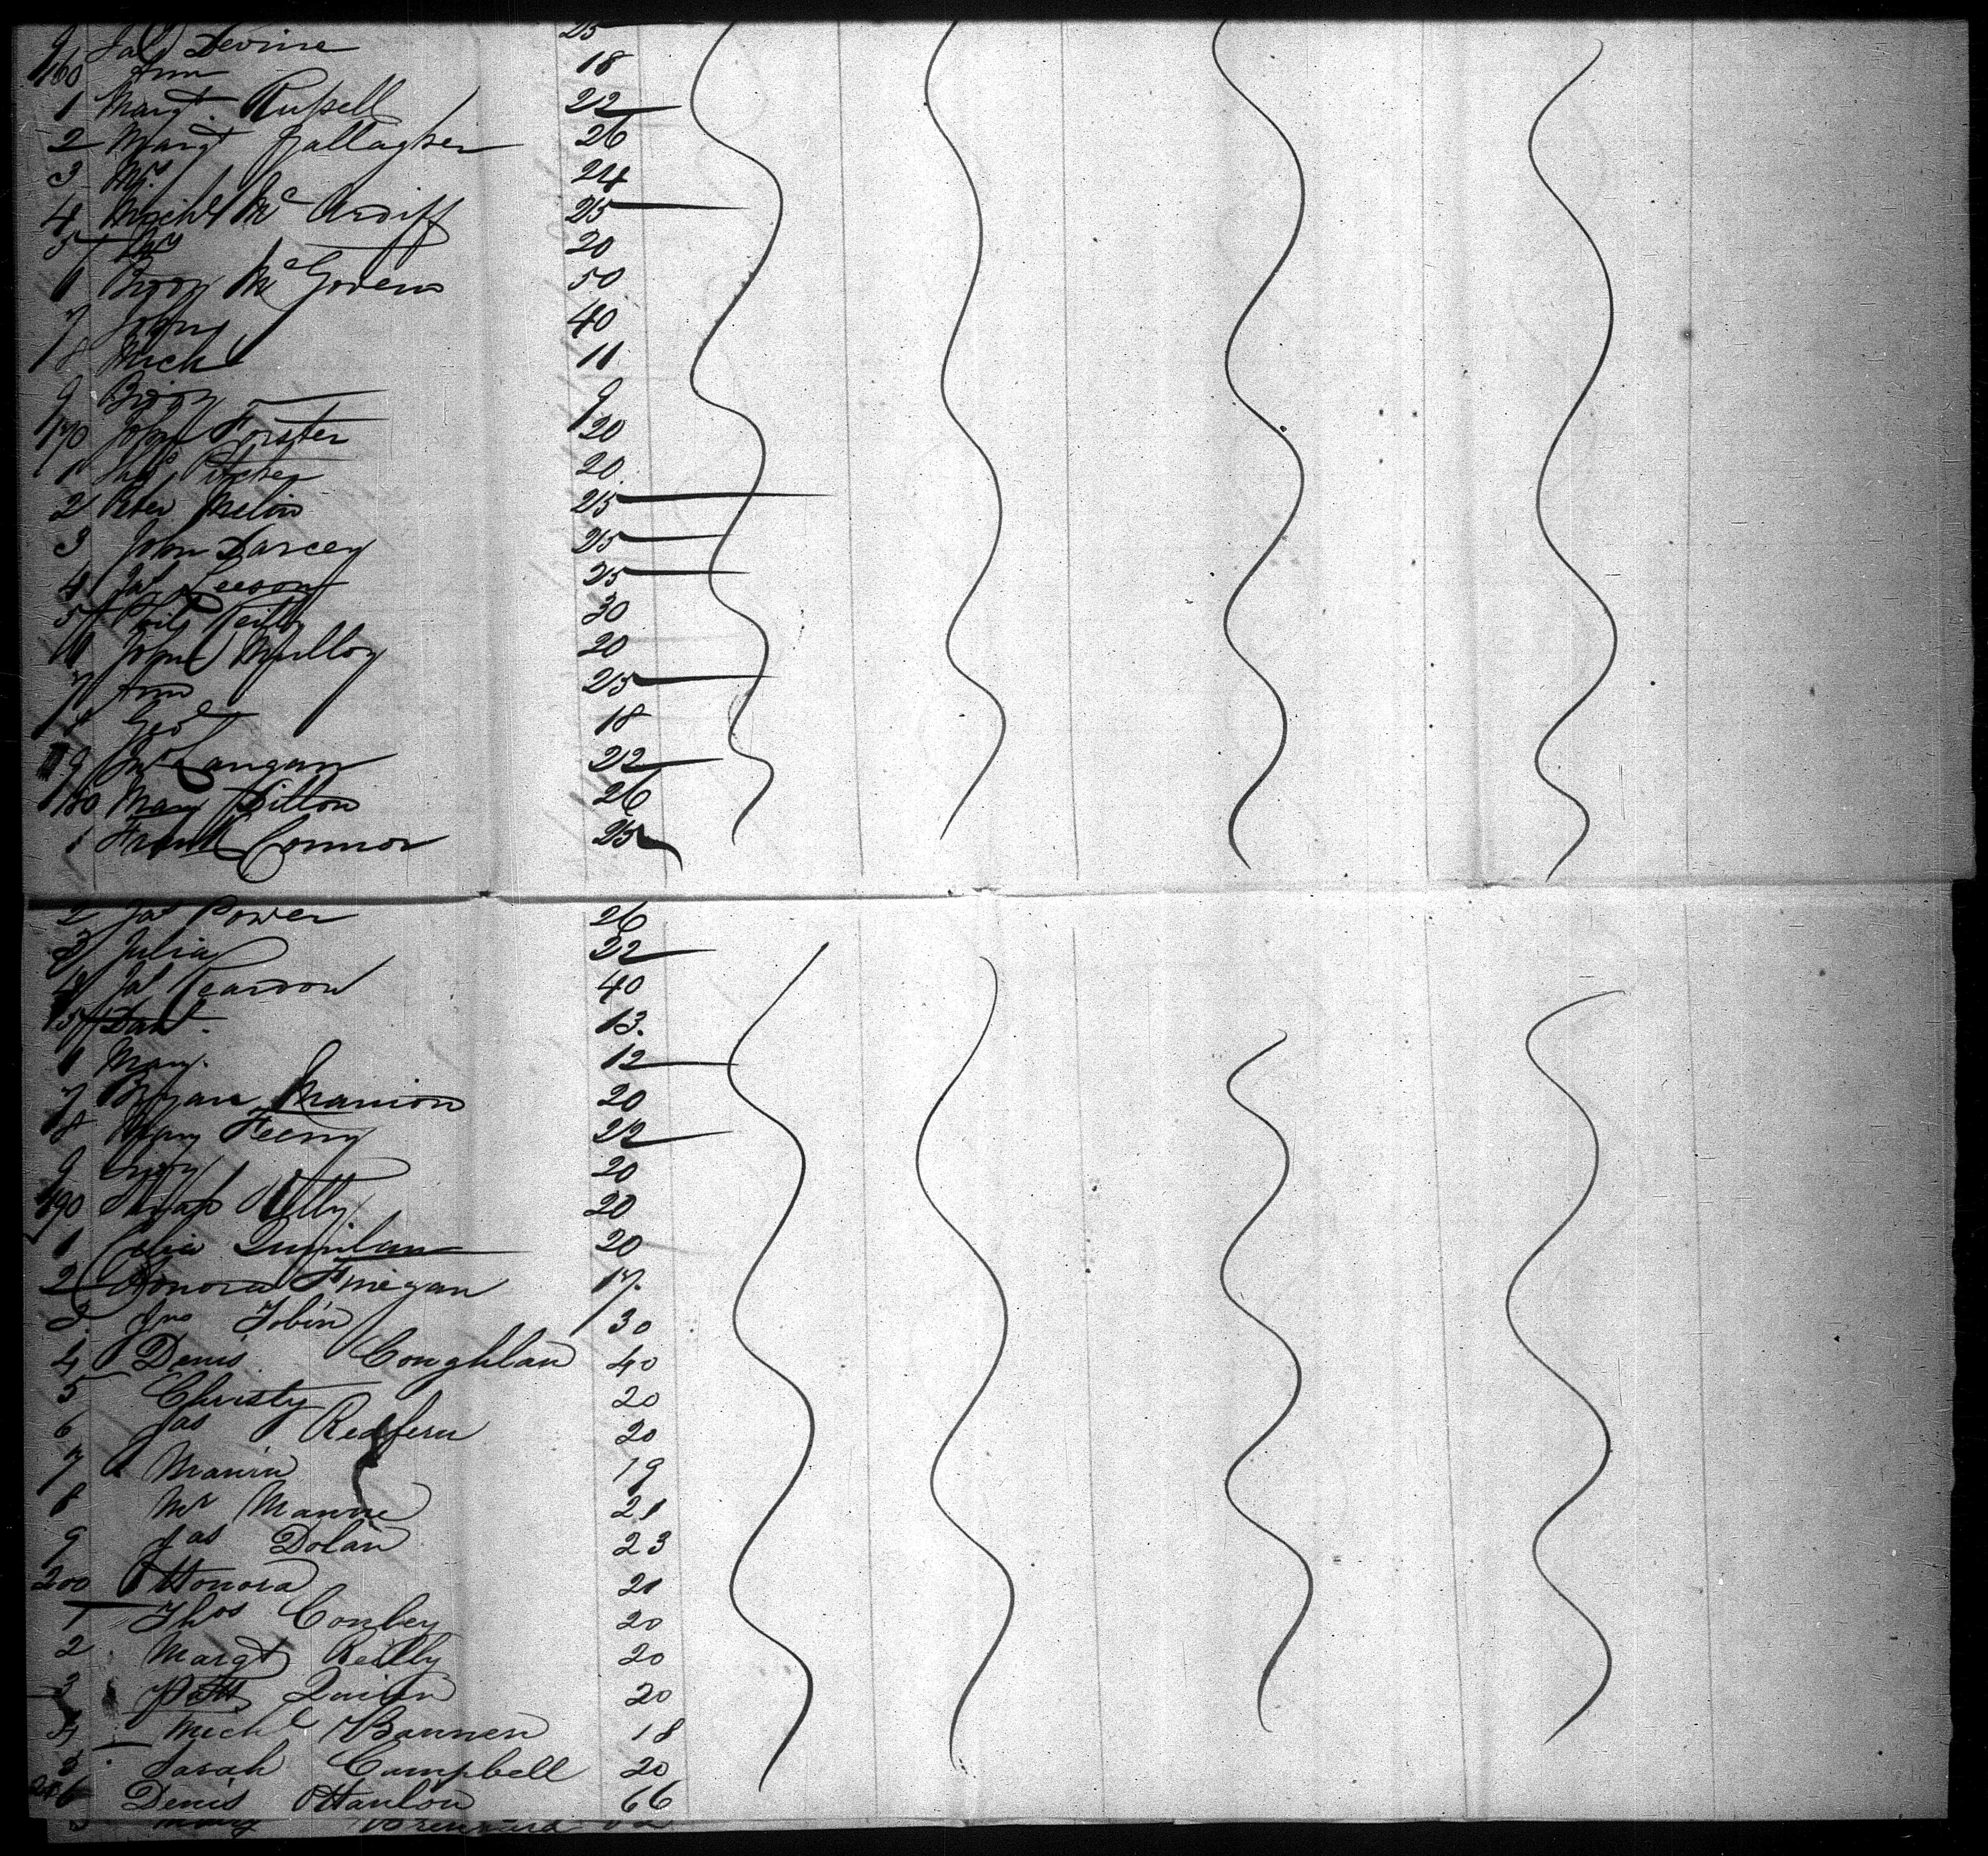 25
9 Jas Devine
160 Ann 18
1 Margt. Russell 22
2 Margt Gallagher 26
3 24
4 Michl McArdiff 25
5 20
6 Biddy McGovern 50
7 John 40
8 Michl 11
9 Biddy 9
170 John Forster 20
1 Jas 20
2 Peter Melin 25
3 John Darcey 25
4 Jas Leeson 25
5 Reilly 30
6 John Mulloy 20
7 Ann 25
8 Geo 18
9 Jas Langan 22
180 Mary Dillon 26
1 Frank Connor 25
2 Jas Power 26
3 Julia 22
4 Jas Reardon 40
5 Danl. 13.
6 Mary. 12
7 Bryan Manion 20
8 Mary Feeny 22
9 20
190 Kelly 20
1 Celia Quinlan 20
2 Honora Finegan 17.
3. Jno Tobin 30
4 Denis Coughlan 40
5 Christy 20
6 Jas Redfern 20
7 19
8 Mr Manne 21
9 Jas Dolan 23
200 Honora 21
1 Thos Conbey 20
2 Margt Reilly 20
3 Patt Quinn 20
4 Michl Bannen 18
5 Sarah Campbell 20
206 Denis OHanlon 66